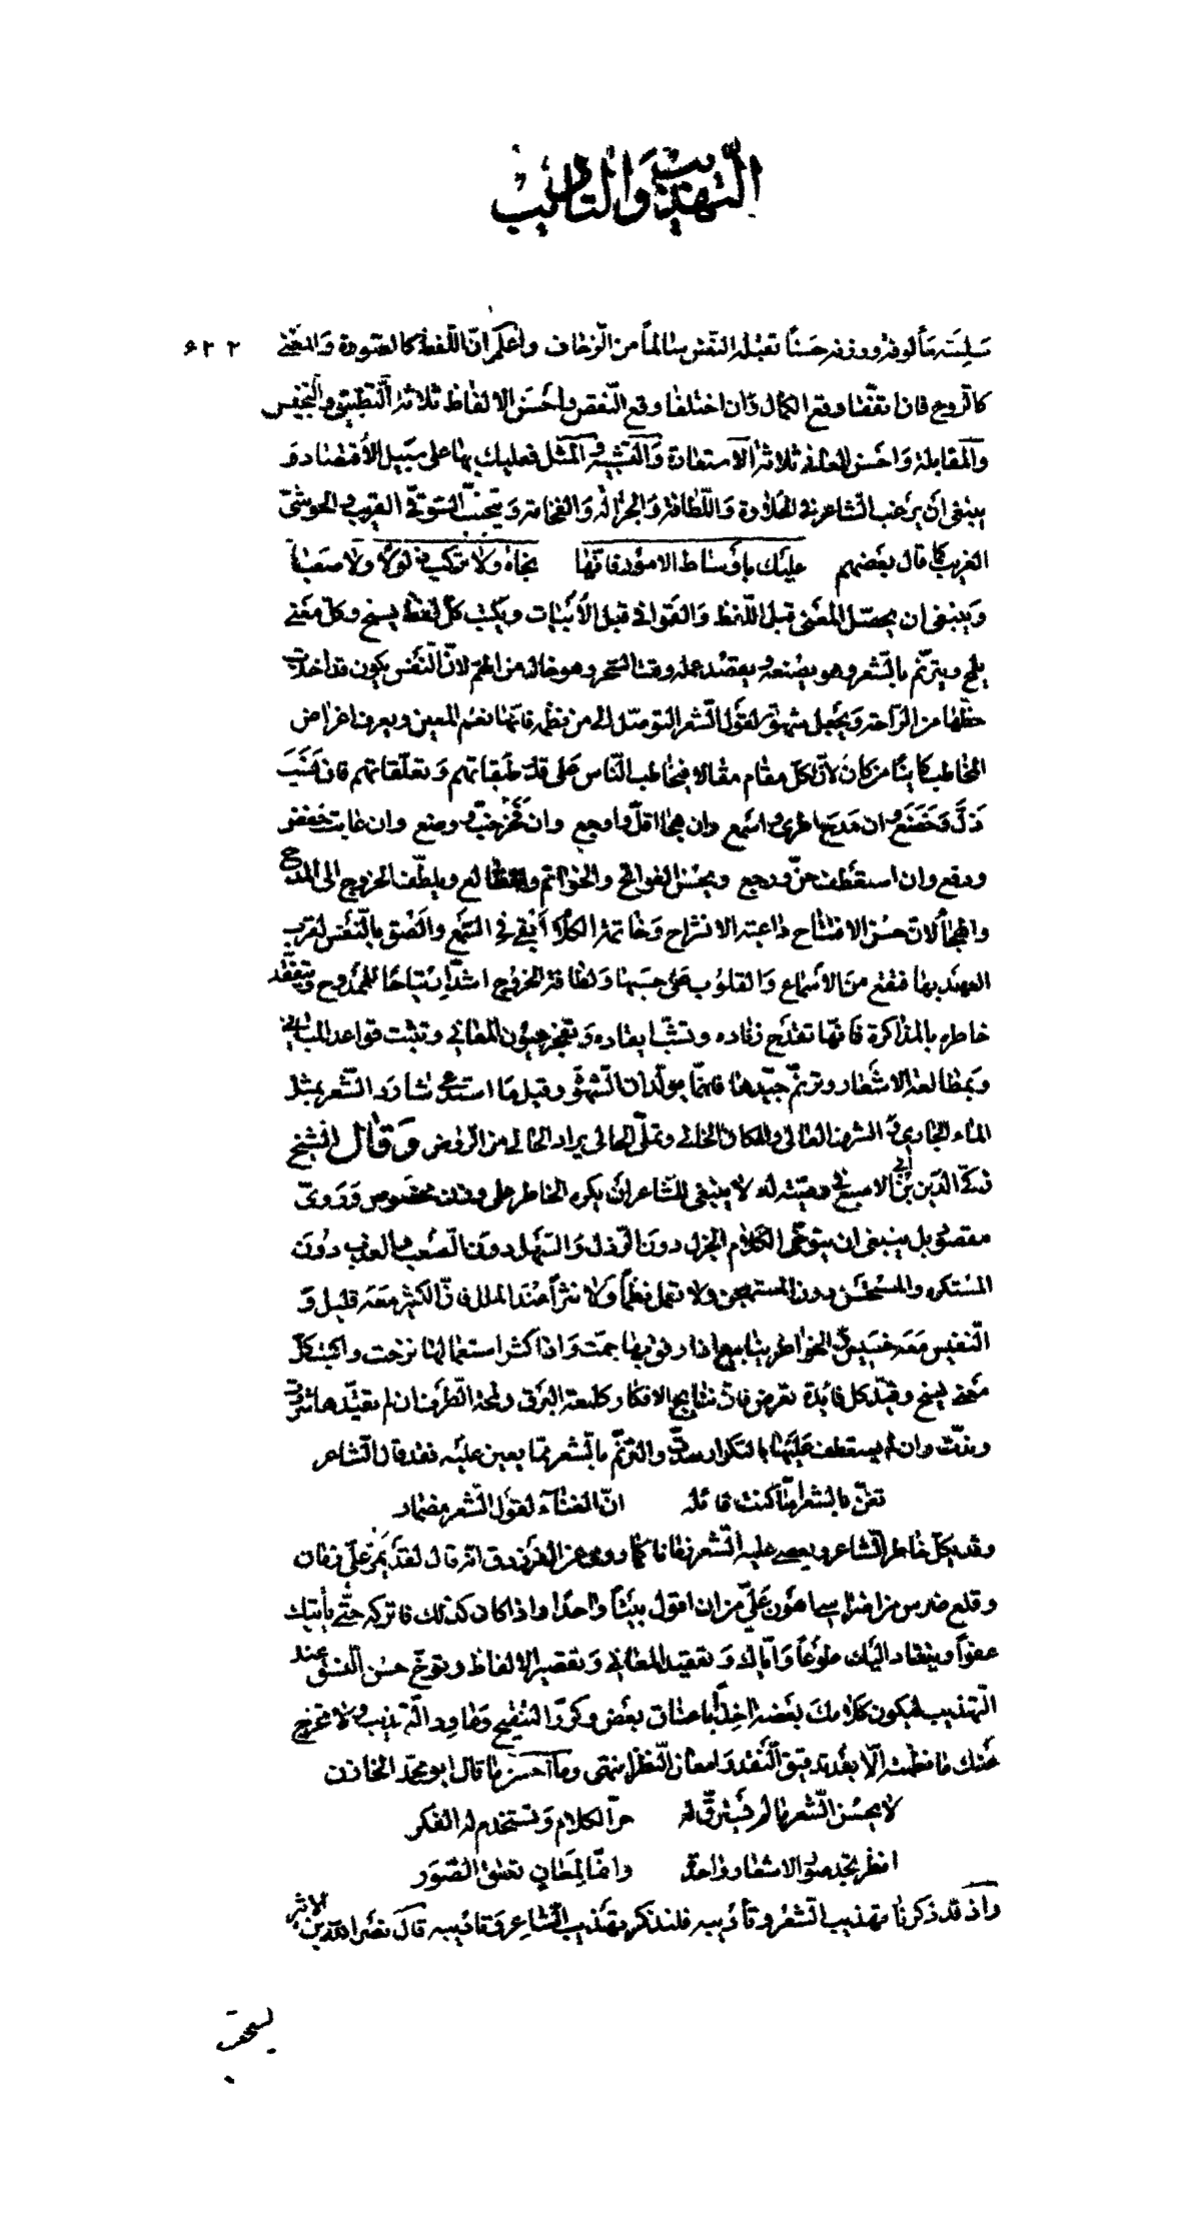 التهذيب والتأديب
سليسة مألوفة ووزنه حسنًا تقبله النفس سالماً من الزحاف واعلم انّ اللّفظ كالصورة والمعنى ٦٢٢
كالروح فان اتفقا وقع الكمال وان اختلفا وقع النقص واحسن الالفاظ ثلاثة التطبيق والتجنيس
والمقابلة واحسن المعانى ثلاثة الاستعارة والتشبيه والمثل فعليك بها على سبيل الاقتصاد و
ينبغى أن يرغب الشاعر فى الحلاوة واللطافة والجزالة والفخامة ويتجنب السوقى القريب والحوشىّ
الغريب كما قال بعضهم عليك باوساط الامور فانّها نجاة ولا تركب ذلولًا ولا صعبا
وينبغى ان يحصّل المعنى قبل اللفظ والقوافى قبل الأبيات ويكتب كلّ لفظ يسنح وكلّ معنى
يلمح ويترنّم بالشعر وهو يصنعه ويقصد عمله وقت السحر وهو خال من الهمّ لانّ النفس يكون قد اخذت
حظّها من الراحة ويجعل شهوته لقول الشعر التوصّل الى من نظمه فانّها نعم المعين ويعرف اغراض
المخاطب كاينًا من كان لأنّ لكلّ مقام مقالا فيخاطب الناس على قدر طبقاتهم وتعلّقاتهم فان نسب
ذلّ وخضع وان مدح اطرى واسمع وان هجا اقلّ واوجع وان فخر خبّ ووضع وان عاتب خفض
ورفع وان استعطف حنّ ورجع ويحسّن الفواتح والخواتم والمطالع ويلطّف الخروج الى المدح
والهجاء لان حسن الافتتاح داعية الانشراح وخاتمة الكلام أبقى فى السّمع والصق بالنفس لقرب
العهد بها فتقع من الأسماع والقلوب على حسبها ولطافة الخروج اشدّ ارتياحًا للممدوح ويتفقّد
خاطره بالمذاكرة فانّها تقدح زناده وتشبّ ايقاده وتفجّر عيون المعانى وتثبت قواعد المبانى
وبمطالعة الاشعار وترنّم جيّدها فانها مولّدان الشهوة وقيل ما استدعى شارد الشعر بمثل
الماء الجارى والشرف العالى والمكان الخالى وتملّى الحالى يراد الحالى من الروض وقال الشيخ
زكىّ الدّين بن أبى الاصبع فى وصيّته له لا ينبغى للشاعر ان يكره الخاطر على وزن مخصوص وروىّ
مقصود بل ينبغى ان يتوخّى الكلام الجزل دون الرذل والسّهل دون الصعب والعذب دون
المستكره والمستحسن دون المستهجن ولا تعمل نظماً ولا نثراً عند الملل فانّ الكثير معه قليل و
النفيس معه خسيس والخواطر ينابيع اذا رفق بها جمّت واذا كثر استعمالها نزحت واكتب كلّ
معنى يسنح وقيّد كل فائدة تعرض فانّ نتايج الافكار كلمعة البرق ولمحة الطرف ان لم تقيّدها شردت
وندّت وان لم يستعطف عليها بالتكرار صدّت والترنّم بالشعر ممّا يعين عليه فقد قال الشاعر
تغنّ بالشعر امّا كنت قائله انّ الغناء لقول الشعر مضمار
وقد يكلّ خاطر الشاعر ويعصى عليه الشعر زمانا كما روى عن الفرزدق انه قال لقد يمرّ علىّ زمان
وقلع ضرس من اضراسى اهون علىّ من ان اقول بيتاً واحدًا واذا كان كذلك فاتركه حتّى يأتيك
عفواً وينقاد اليك طوعاً وايّاك وتعقيد المعانى وتقعير الالفاظ وتوخّ حسن النسق عند
التهذيب ليكون كلامك بعضه اخذًا باعناق بعض وكرّر التنقيح وعاود التهذيب ولا تخرج
عنك ما نظمته الّا بعد تدقيق النقد وامعان النظر انتهى وما احسن ما قال ابو محمّد الخازن
لا يحسن الشعر ما لم يسترقّ له حرّ الكلام وتستخدم له الفكر
انظر تجد صور الاشعار واحدة وانّما لمعان تعشق الصّور
واذ قد ذكرنا تهذيب الشعر وتأديبه فلنذكر تهذيب الشاعر وتاديبه قال نصر الله بن الاثير
يستحب